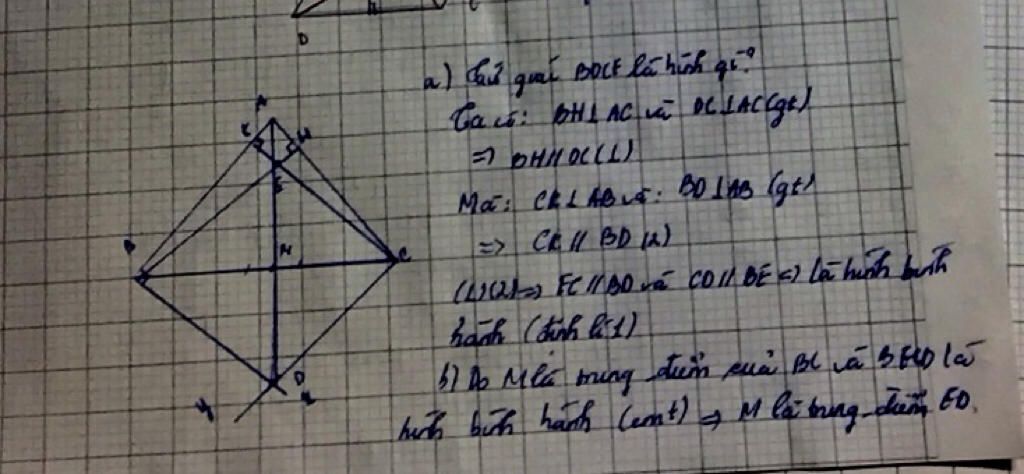 D
a) Tứ giác BDCE là hình gì?
Ta có: BH⊥AC và DC⊥AC (gt)
=> BH//DC (1)
Mà: CK⊥AB và: BD⊥AB (gt)
=> CK // BD (2)
(1)(2) => EC//BD và CD//BE => là hình bình
hành (định lí 1)
b) Do M là trung điểm của BC và BECD là
hình bình hành (cmt) => M là trung điểm ED.
A
K
H
E
B
M
C
D
y
x